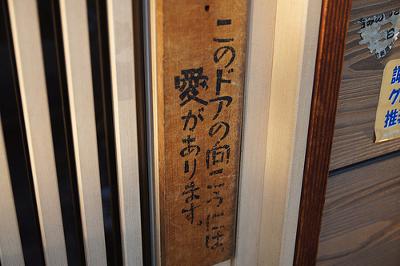 このドアの向こうには、
愛があります。